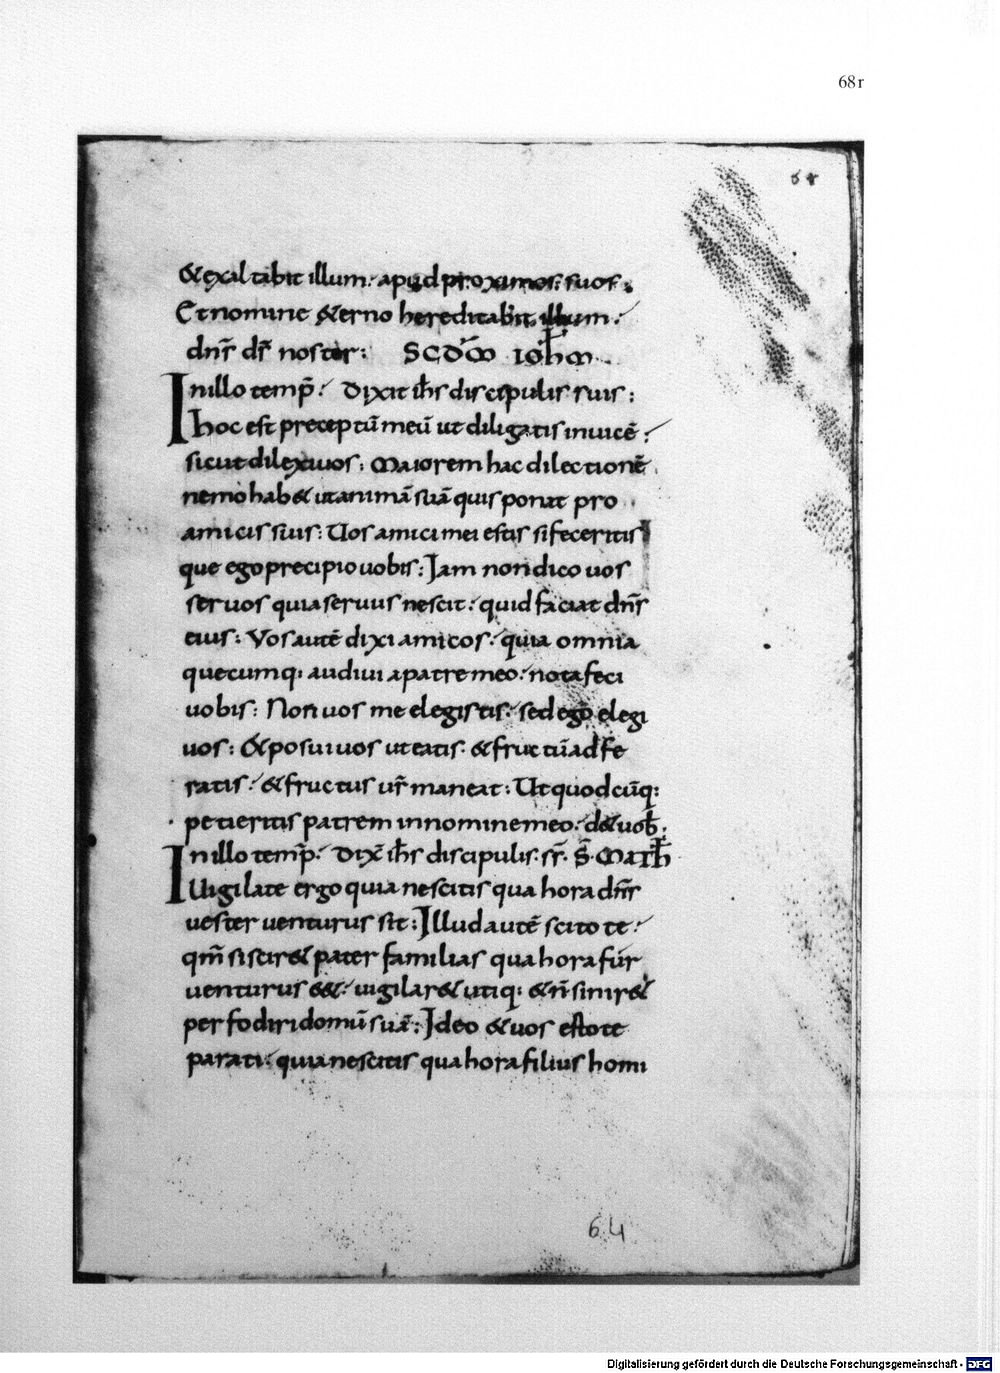 68r
64
&exaltabit illum· apud proximos suos·
Et nomine &erno hereditabit illum·
dn̄r dr̄ noster: SCDM̄ IOH̄M
Inillo temp̄· Dixit ih̄s discipulis suis:
hoc est preceptū meū ut diligatis inuicē·
sicut dilexi uos: Maiorem hac dilectionē
nemo hab& ut animā suā quis ponat pro
amicis suis: Uos amici mei estis si feceritis
que ego precipio uobis: Iam non dico uos
seruos quia seruus nescit· quid faciat dn̄r
eius: Vos autē dixi amicos· quia omnia
quecumq: audiui a patre meo· nota feci
uobis: Non uos me elegistis· sed ego elegi
uos: & posui uos ut eatis· & fructū adfe
ratis· & fructus ur̄ maneat: Ut quodcūq:
petieritis patrem in nomine meo· d& uob̄·
Inillo temp̄· Dix̄ ih̄s discipulis· sr̄· S̄· MATH̄
Uigilate ergo quia nescitis qua hora dn̄r
uester uenturus sit: Illud autē scitote·
qm̄ si scir& pater familias qua hora fur
uenturus e&· uigilar& utiq: & n̄ sinir&
perfodiri domū suā: Ideo & uos estote
parati· quia nescitis qua hora filius homi
64
Digitalisierung gefördert durch die Deutsche Forschungsgemeinschaft - DFG